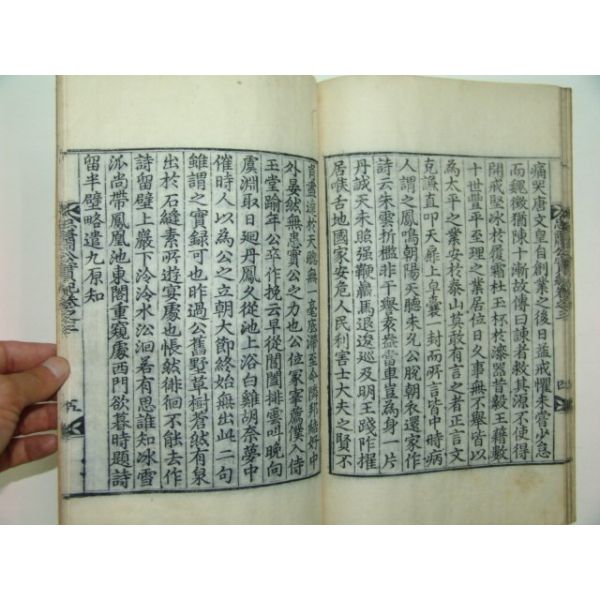 痛哭唐文皇自創業之後日益戒懼未嘗少怠
而魏徵猶陳十漸故傳曰諫者救其源不使得
開戒堅冰於覆霜杜玉杯於漆器昔毅王藉數
十世豊平至理之業居位日久事無不舉皆以
為太平之業安於泰山莫敢有言之者正言文
克謙直叩天扉上皁囊一封而所言皆中時病
人謂之鳳鳴朝陽天聽未允公脫朝衣還家作
詩云朱雲折檻非干譽袁盎當車豈為身一片
丹誠天未照强鞭羸馬退逡巡及明王踐阼擢
居喉舌地國家安危人民利害士大夫之賢不
肖盡達於天聰無一毫底滯至令隣邦結好中
外晏然無患實公之力也公位冢宰薦僕入侍
玉堂踰年公卒作挽云早從閶闔排雲叫晩向
虞淵取日廻丹鳳久從池上浴白雞胡奈夢中
催時人以為公之立朝大節終始無出此二句
雖謂之實錄可也昨過公舊墅草樹蒼然有泉
出於石縫素所遊宴處也悵然徘徊不能去作
詩留壁上巖下泠泠水沿洄若有思誰知冰雪
派尚帶鳳凰池東閣重窺處西門欲暮時題詩
留半壁略遣九原知